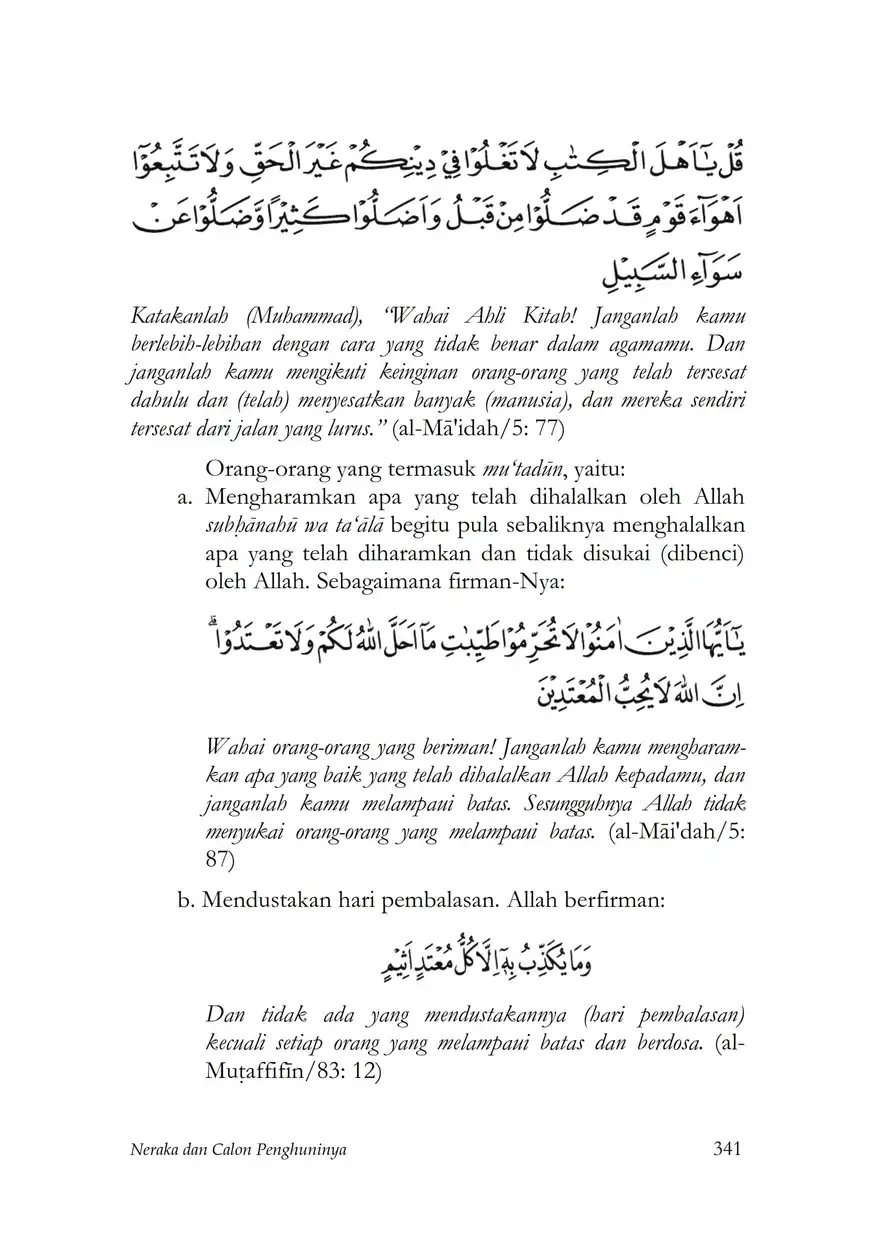 قُلْ يٰٓاَهْلَ الْكِتٰبِ لَا تَغْلُوْا فِيْ دِيْنِكُمْ غَيْرَ الْحَقِّ وَلَا تَتَّبِعُوْٓا
اَهْوَاۤءَ قَوْمٍ قَدْ ضَلُّوْا مِنْ قَبْلُ وَاَضَلُّوْا كَثِيْرًا وَّضَلُّوْا عَنْ
سَوَاۤءِ السَّبِيْلِ
Katakanlah (Muhammad), “Wahai Ahli Kitab! Janganlah kamu
berlebih-lebihan dengan cara yang tidak benar dalam agamamu. Dan
janganlah kamu mengikuti keinginan orang-orang yang telah tersesat
dahulu dan (telah) menyesatkan banyak (manusia), dan mereka sendiri
tersesat dari jalan yang lurus.” (al-Mā'idah/5: 77)
Orang-orang yang termasuk mu‘tadūn, yaitu:
a. Mengharamkan apa yang telah dihalalkan oleh Allah
subḥānahū wa ta‘ālā begitu pula sebaliknya menghalalkan
apa yang telah diharamkan dan tidak disukai (dibenci)
oleh Allah. Sebagaimana firman-Nya:
يٰٓاَيُّهَا الَّذِيْنَ اٰمَنُوْا لَا تُحَرِّمُوْا طَيِّبٰتِ مَآ اَحَلَّ اللّٰهُ لَكُمْ وَلَا تَعْتَدُوْا ۗ
اِنَّ اللّٰهَ لَا يُحِبُّ الْمُعْتَدِيْنَ
Wahai orang-orang yang beriman! Janganlah kamu mengharam-
kan apa yang baik yang telah dihalalkan Allah kepadamu, dan
janganlah kamu melampaui batas. Sesungguhnya Allah tidak
menyukai orang-orang yang melampaui batas. (al-Māi'dah/5:
87)
b. Mendustakan hari pembalasan. Allah berfirman:
وَمَا يُكَذِّبُ بِهٖٓ اِلَّا كُلُّ مُعْتَدٍ اَثِيْمٍ
Dan tidak ada yang mendustakannya (hari pembalasan)
kecuali setiap orang yang melampaui batas dan berdosa. (al-
Muṭaffifīn/83: 12)
Neraka dan Calon Penghuninya 341